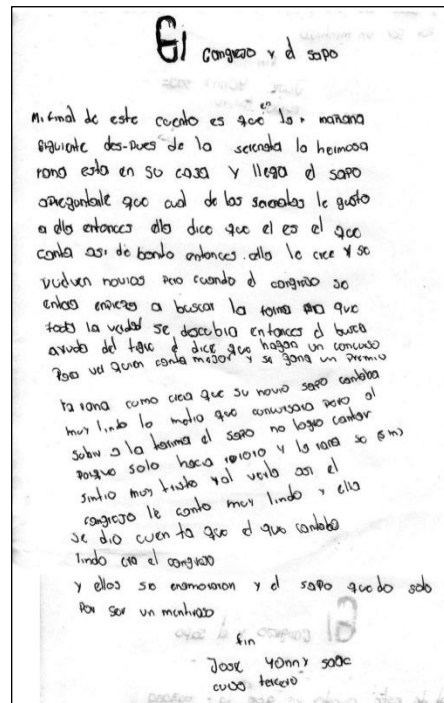 El congrejo y el sapo
Mi final de este cuento es que en la mañana
siguiente des-pues de la serenata la hermosa
rana esta en su casa y llega el sapo
a preguntale que cual de las serenatas le gusto
a ella entonces ella dice que el es el que
canta asi de bonito entonces. ella le cree y se
vuelven novios pero cuando el congrejo se
entera empieza a buscar la forma pra que
toda la verdad se descubra entonces el busca
ayuda del tigre el dice que hagan un concurso
Para ver quien canta mejor y se gana un premio
la rana como creia que su novio sapo cantaba
muy lindo lo metio que concursara pero al
subir a la tarima el sapo no logro cantar
porque solo hacia y la rana se
sintio muy triste y al verla asi el
congrejo le canto muy lindo y ella
se dio cuen ta que el que cantaba
lindo era el congrejo
y ellos se enamoraron y el sapo quedo solo
Por ser un mentiroso
fin
Jose Yonny
curso tercero